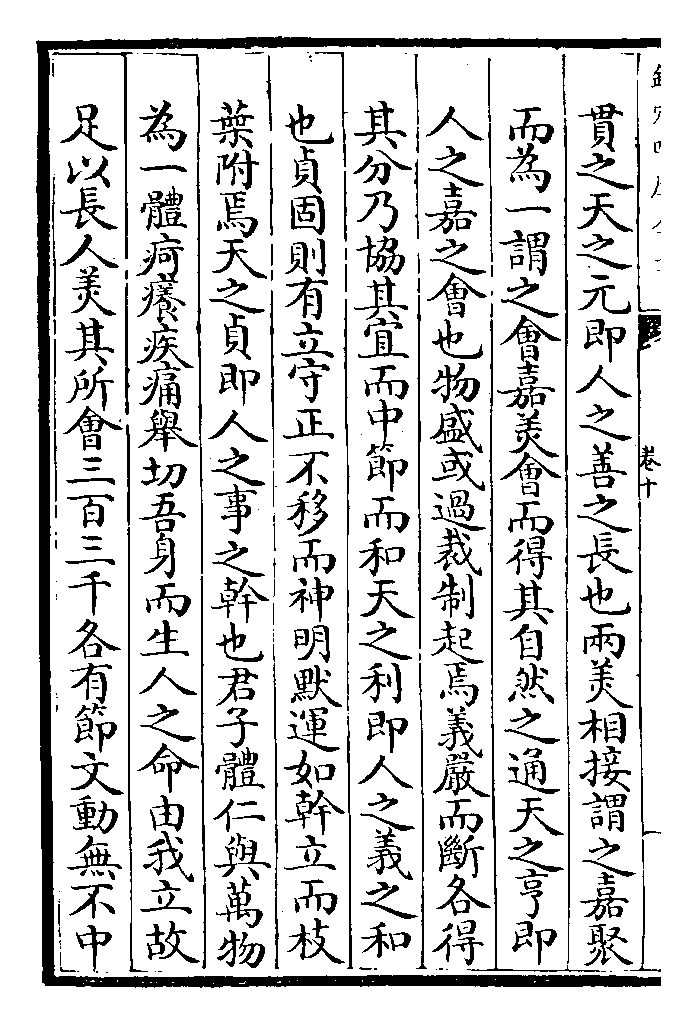 卷十
貫之天之元即人之善之長也兩美相接謂之嘉聚
而為一謂之會嘉美會而得其自然之通天之亨即
人之嘉之會也物盛或過裁制起焉義嚴而斷各得
其分乃協其宜而中節而和天之利即人之義之和
也貞固則有立守正不移而神明默運如幹立而枝
葉附焉天之貞即人之事之幹也君子體仁與萬物
為一體疴癢疾痛舉切吾身而生人之命由我立故
足以長人美其所會三百三千各有節文動無不中